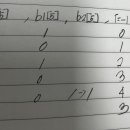 , b1[5], b2[5], [-1
1 0
1 1
1 2
0 3
0 1→1 4
3